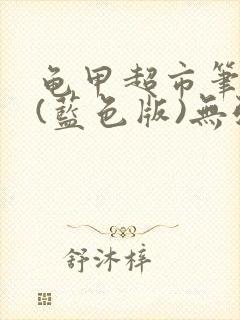 龟甲超市筆
(藍色版)無
舒沐梓